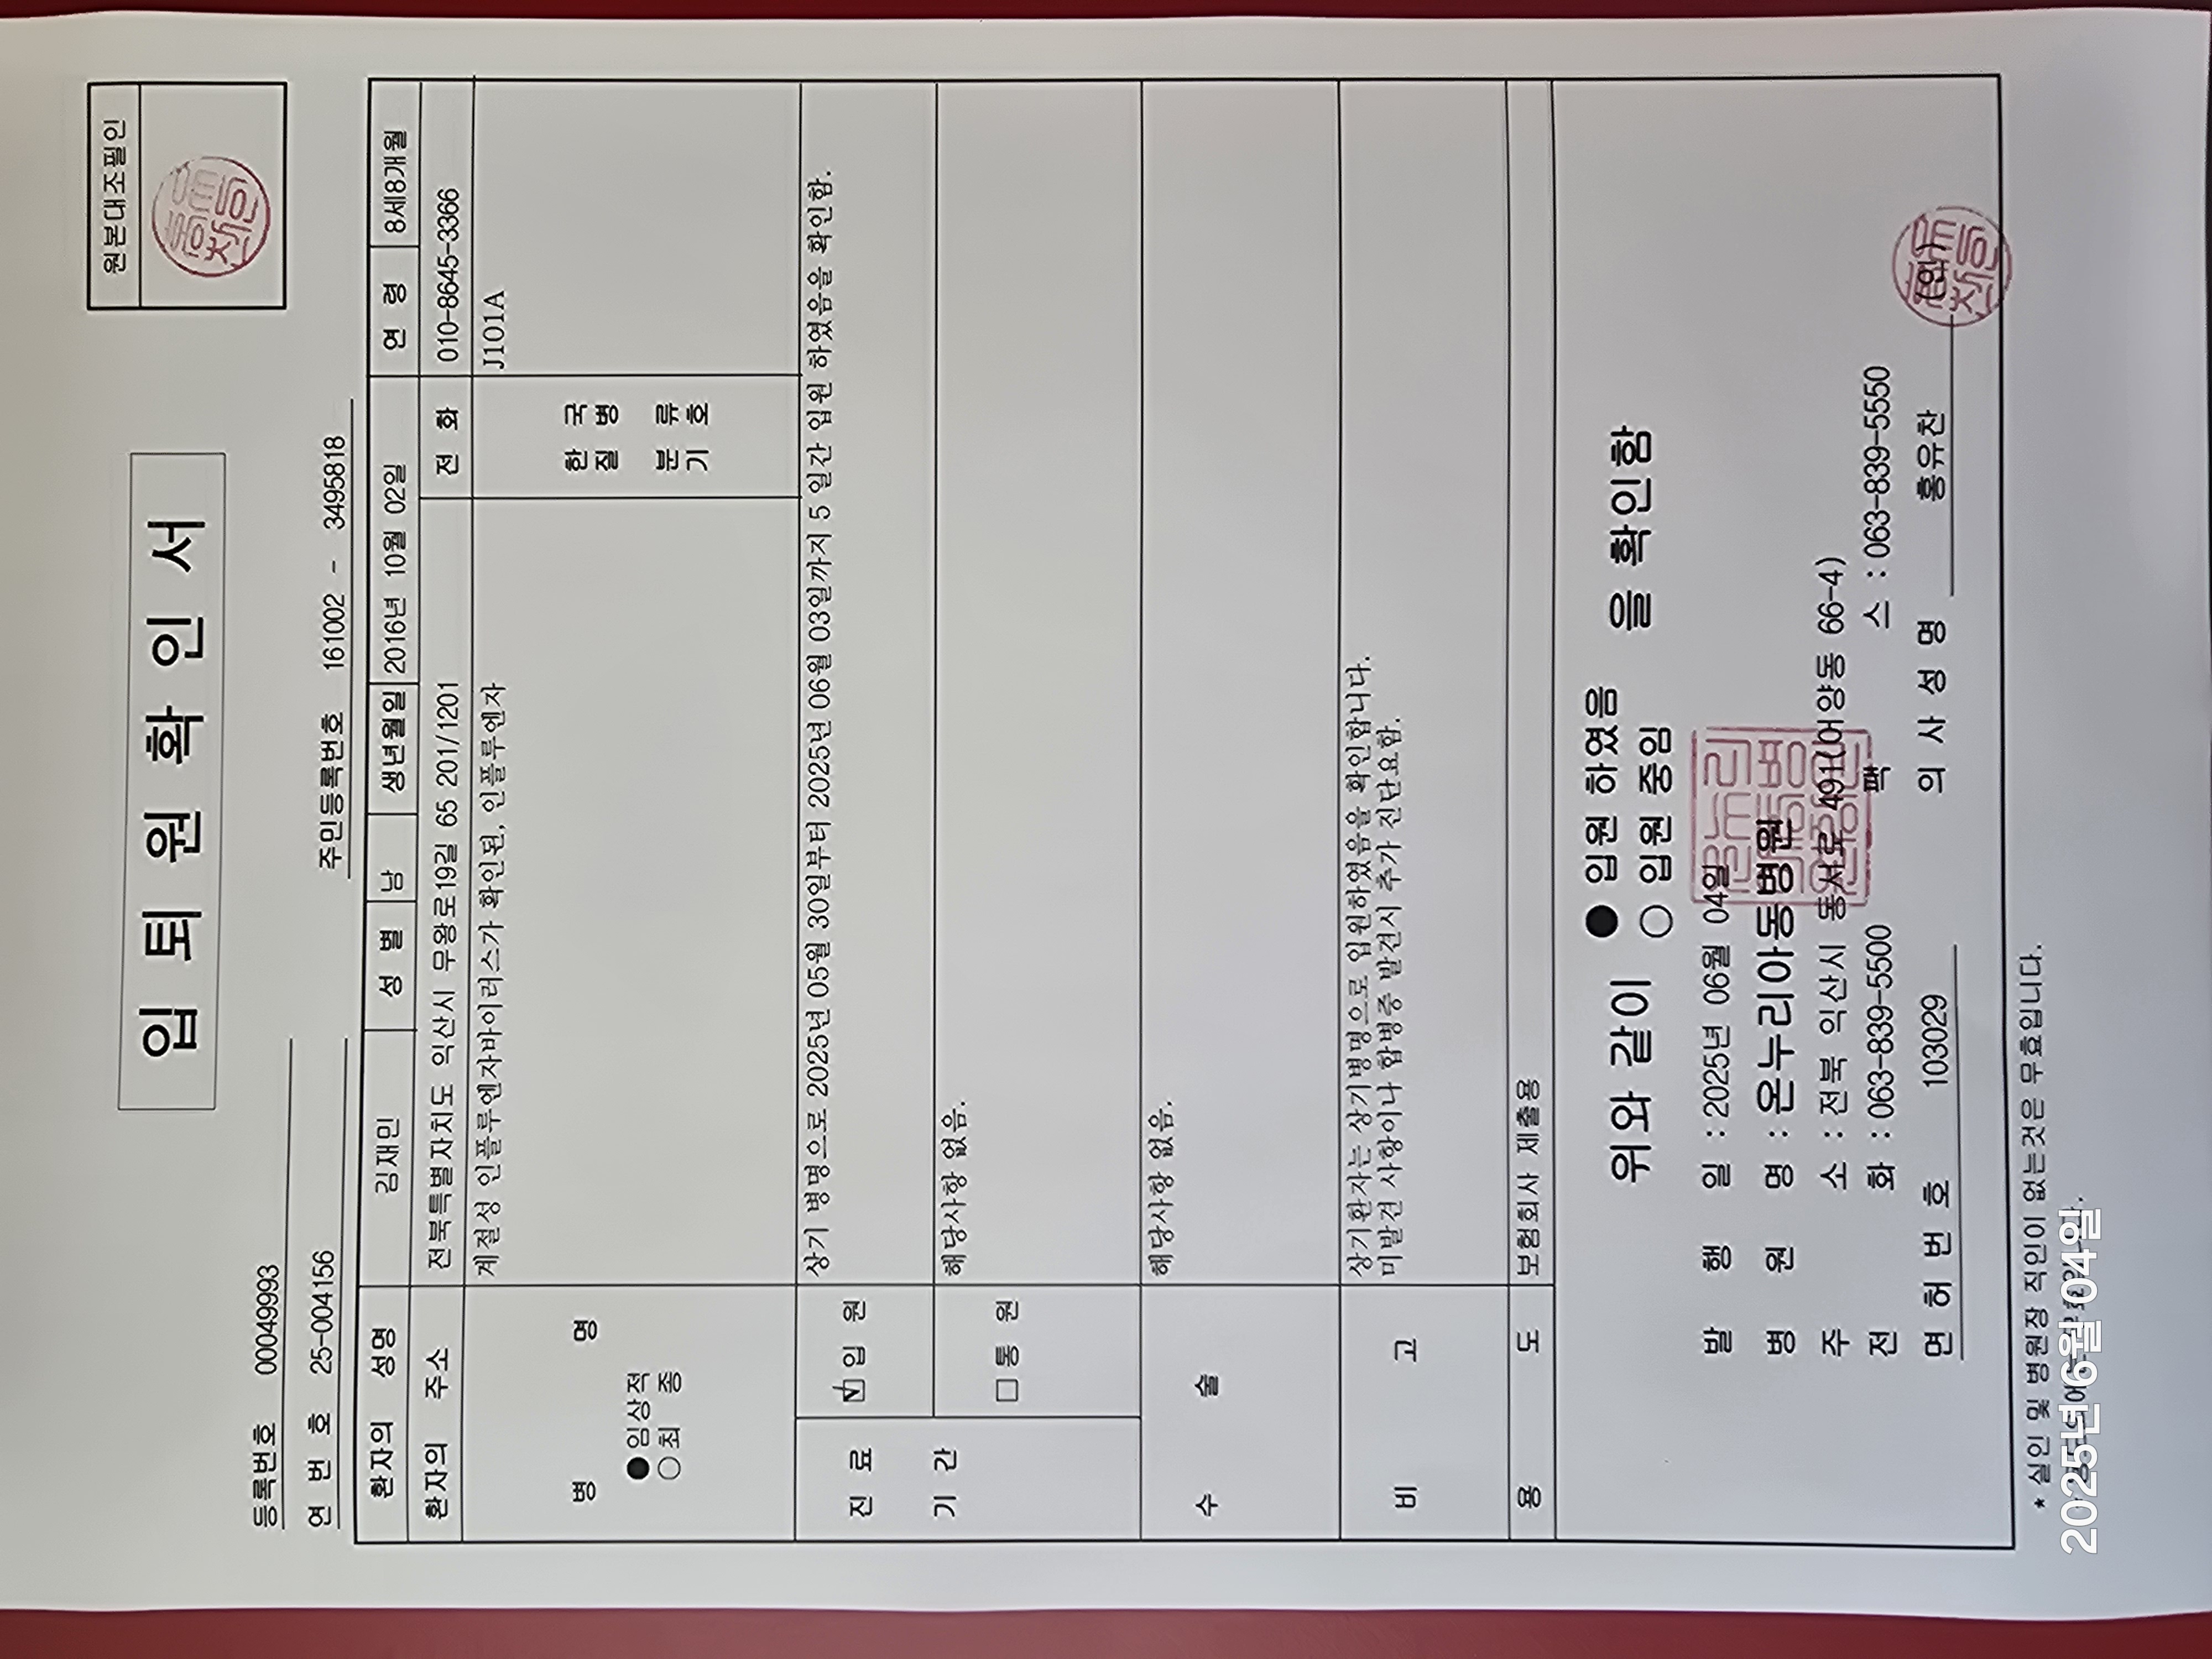 원본대조필인
입퇴원확인서
등록번호 00049993
연번호 25-004156
주민등록번호 161002 - 3495818
환자의 성명 김재민 성별 남 생년월일 2016년 10월 02일 연령 8세8개월
환자의 주소 전북특별자치도 익산시 무왕로19길 65 201/1201 전화 010-8645-3366
병명
●임상적
○최종
계절성 인플루엔자바이러스가 확인된, 인플루엔자
한국
질병
분류
기호
J101A
진료
기간
☑입원 상기 병명으로 2025년 05월 30일부터 2025년 06월 03일까지 5 일간 입원 하였음을 확인함.
□통원 해당사항 없음.
수술 해당사항 없음.
비고 상기환자는 상기병명으로 입원하였음을 확인합니다.
미발견 사항이나 합병증 발견시 추가 진단요함.
용도 보험회사 제출용
위와 같이 ● 입원 하였음 을 확인함
○ 입원 중임
발행일 : 2025년 06월 04일
병원명 : 온누리아동병원
주소 : 전북 익산시 동서로 491(어양동 66-4)
전화 : 063-839-5500 팩스 : 063-839-5550
면허번호 103029 의사성명 홍유찬 (인)
* 실인 및 병원장 직인이 없는것은 무효입니다.
2025년 6월 04일